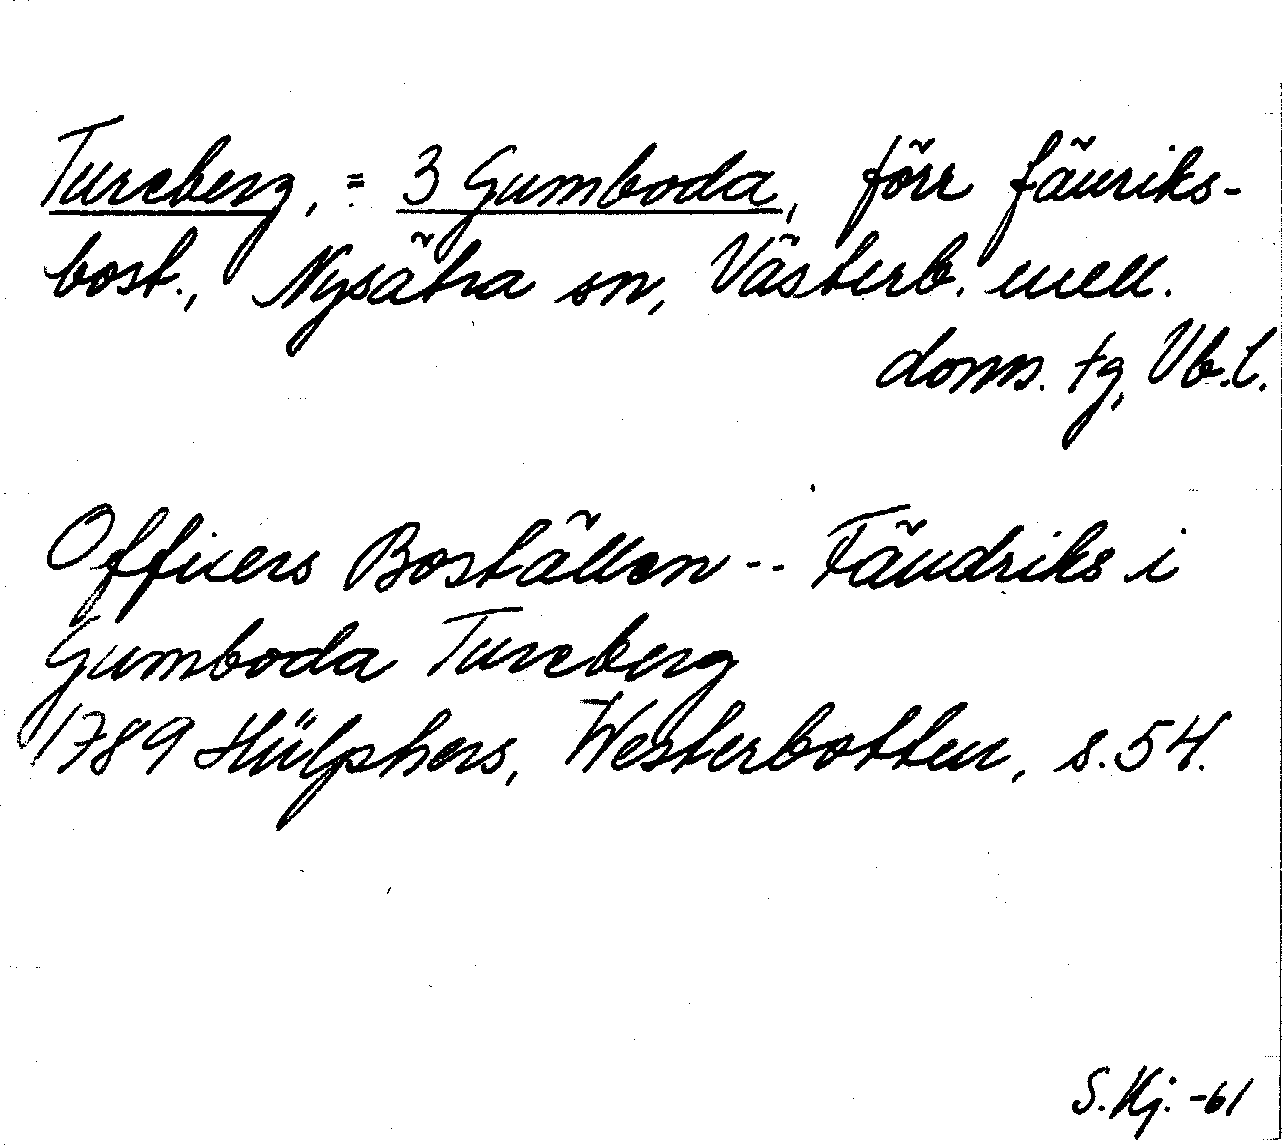 Tureberg, = 3 Gumboda, förr fänriks-
bost., Nysätra sn, Västerb. mell.
doms. tg, Vb.l.
Officers Boställen -- Fändriks i
Gumboda Tureberg
1789 Hülphers, Westerbotten, s. 54.
S.Kj. -61